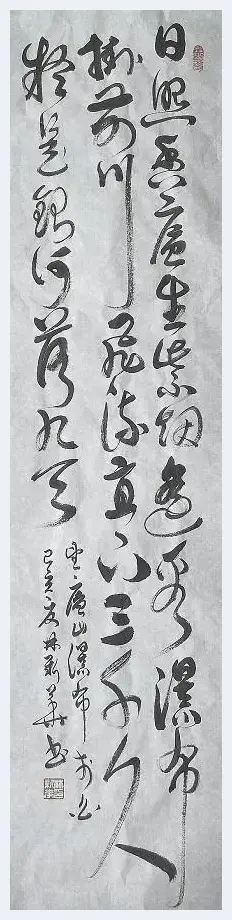 日照香廬生紫烟遥看瀑布
掛前川飛流直下三千尺
疑是銀河落九天
望廬山瀑布李白
己亥夏林華书